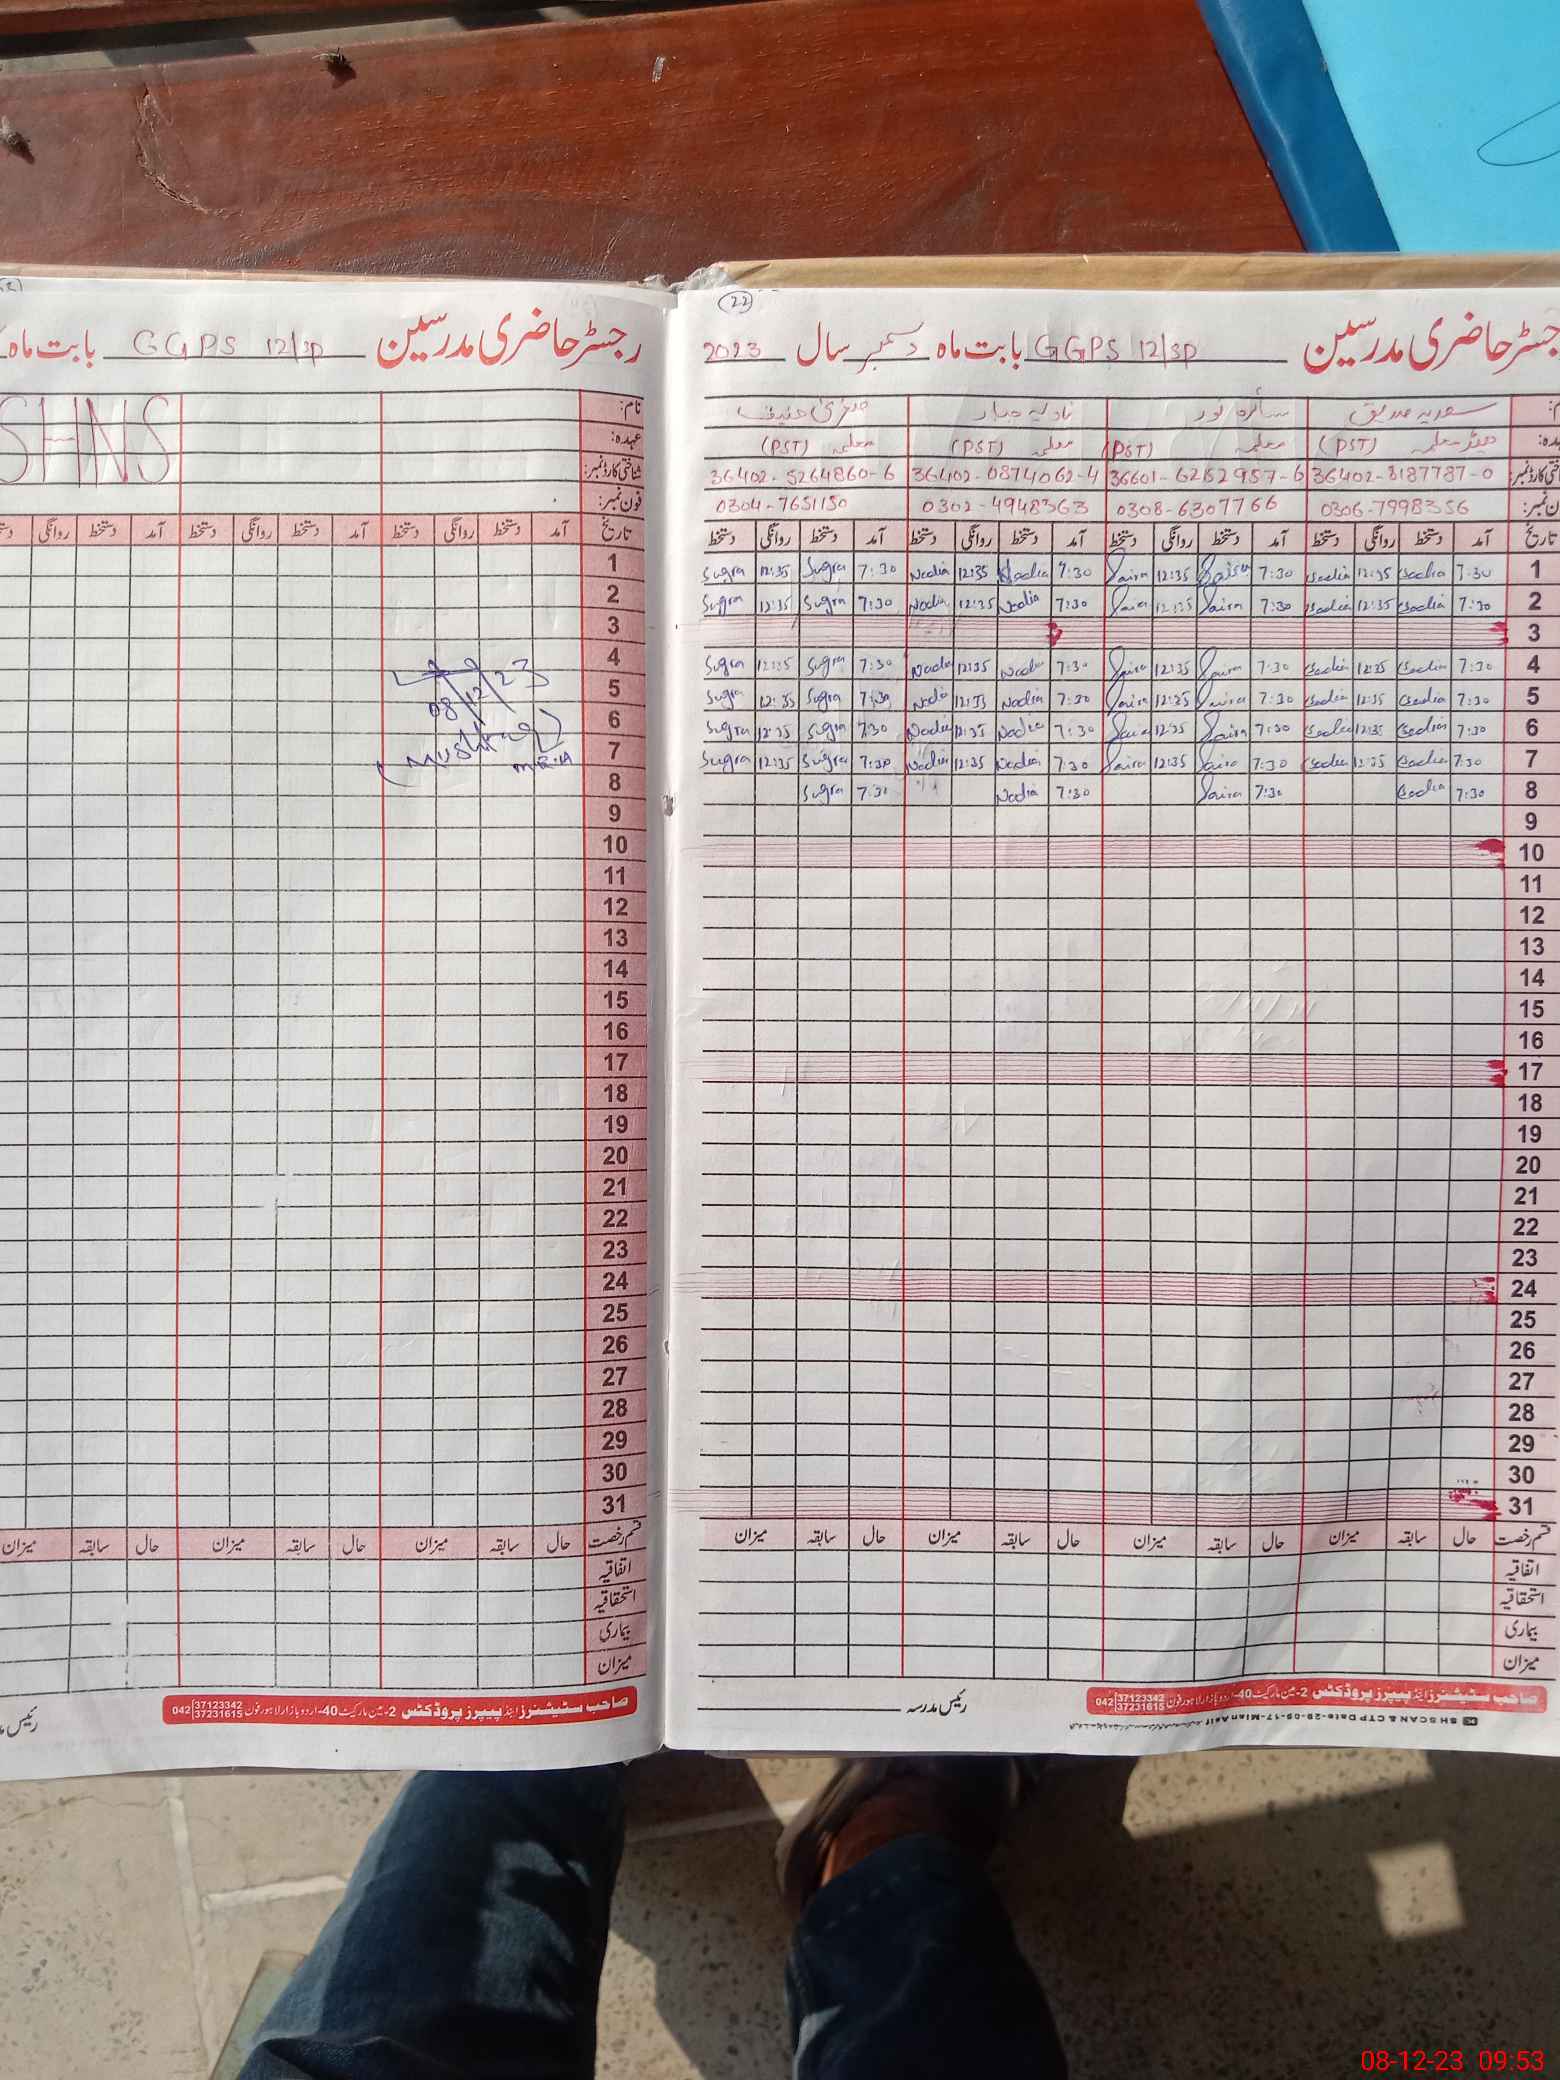 رجسٹر حاضری مدرسین GGPS 12/SP بابت ماہ
SHNS
نام:
عہدہ:
شناختی کارڈ نمبر:
فون نمبر:
تاریخ آمد دستخط روانگی دستخط آمد دستخط روانگی دستخط آمد دستخط روانگی
1
2
3
4
5
08/12/23
6
(Mushtaq)
7
MEA
8
9
10
11
12
13
14
15
16
17
18
19
20
21
22
23
24
25
26
27
28
29
30
31
قسم رخصت حال سابقہ میزان حال سابقہ میزان حال سابقہ میزان
اتفاقیہ
استحقاقیہ
بیماری
میزان
صاحب سٹیشنرز اینڈ پیپرز پروڈکٹس 2-مین مارکیٹ 40-اردو بازار لاہور فون 042 37123342 37231615
22
رجسٹر حاضری مدرسین GGPS 12/SP بابت ماہ دسمبر سال 2023
سعدیہ صدیق سائرہ نور نادیہ جبار صغریٰ حنیف
ہیڈ معلمہ (PST) معلمہ (PST) معلمہ (PST) معلمہ (PST)
36402-8187787-0 36601-6262957-6 36402-0874062-4 36402-5264860-6
فون نمبر: 0306-7998356 0308-6307766 0302-4948363 0304-7651150
تاریخ آمد دستخط روانگی دستخط آمد دستخط روانگی دستخط آمد دستخط روانگی دستخط آمد دستخط روانگی دستخط
1 7:30 Sadia 12:35 Sadia 7:30 Saira 12:35 Saira 7:30 Nadia 12:35 Nadia 7:30 Sugra 12:35 Sugra
2 7:30 Sadia 12:35 Sadia 7:30 Saira 12:35 Saira 7:30 Nadia 12:35 Nadia 7:30 Sugra 12:35 Sugra
3
4 7:30 Sadia 12:35 Sadia 7:30 Saira 12:35 Saira 7:30 Nadia 12:35 Nadia 7:30 Sugra 12:35 Sugra
5 7:30 Sadia 12:35 Sadia 7:30 Saira 12:35 Saira 7:30 Nadia 12:35 Nadia 7:30 Sugra 12:35 Sugra
6 7:30 Sadia 12:35 Sadia 7:30 Saira 12:35 Saira 7:30 Nadia 12:35 Nadia 7:30 Sugra 12:35 Sugra
7 7:30 Sadia 12:35 Sadia 7:30 Saira 12:35 Saira 7:30 Nadia 12:35 Nadia 7:30 Sugra 12:35 Sugra
8 7:30 Sadia 7:30 Saira 7:30 Nadia 7:30 Sugra
9
10
11
12
13
14
15
16
17
18
19
20
21
22
23
24
25
26
27
28
29
30
31
قسم رخصت حال سابقہ میزان حال سابقہ میزان حال سابقہ میزان حال سابقہ میزان
اتفاقیہ
استحقاقیہ
بیماری
میزان
صاحب سٹیشنرز اینڈ پیپرز پروڈکٹس 2-مین مارکیٹ 40-اردو بازار لاہور فون 042 37123342 37231615
رئیس مدرسہ
SH SCAN & CTP Date-29-09-17-Mian Asif
08-12-23 09:53